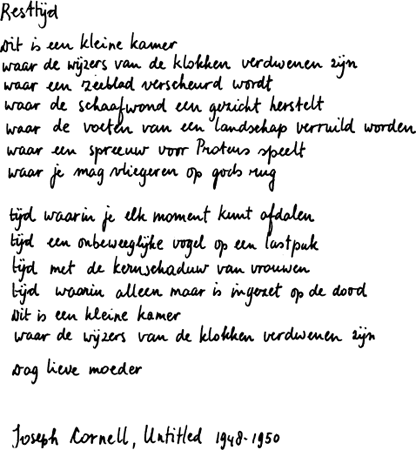 Resttijd
Dit is een kleine kamer
waar de wijzers van de klokken verdwenen zijn
waar een zeeblad verscheurd wordt
waar de schaafwond een gezicht herstelt
waar de voeten van een landschap verruild worden
waar een spreeuw voor Proteus speelt
waar je mag vliegeren op gods rug
tijd waarin je elk moment kunt afdalen
tijd een onbeweeglijke vogel op een lastpak
tijd met de kernschaduw van vrouwen
tijd waarin alleen maar is ingezet op de dood
Dit is een kleine kamer
waar de wijzers van de klokken verdwenen zijn
Dag lieve moeder
Joseph Cornell, Untitled 1948-1950